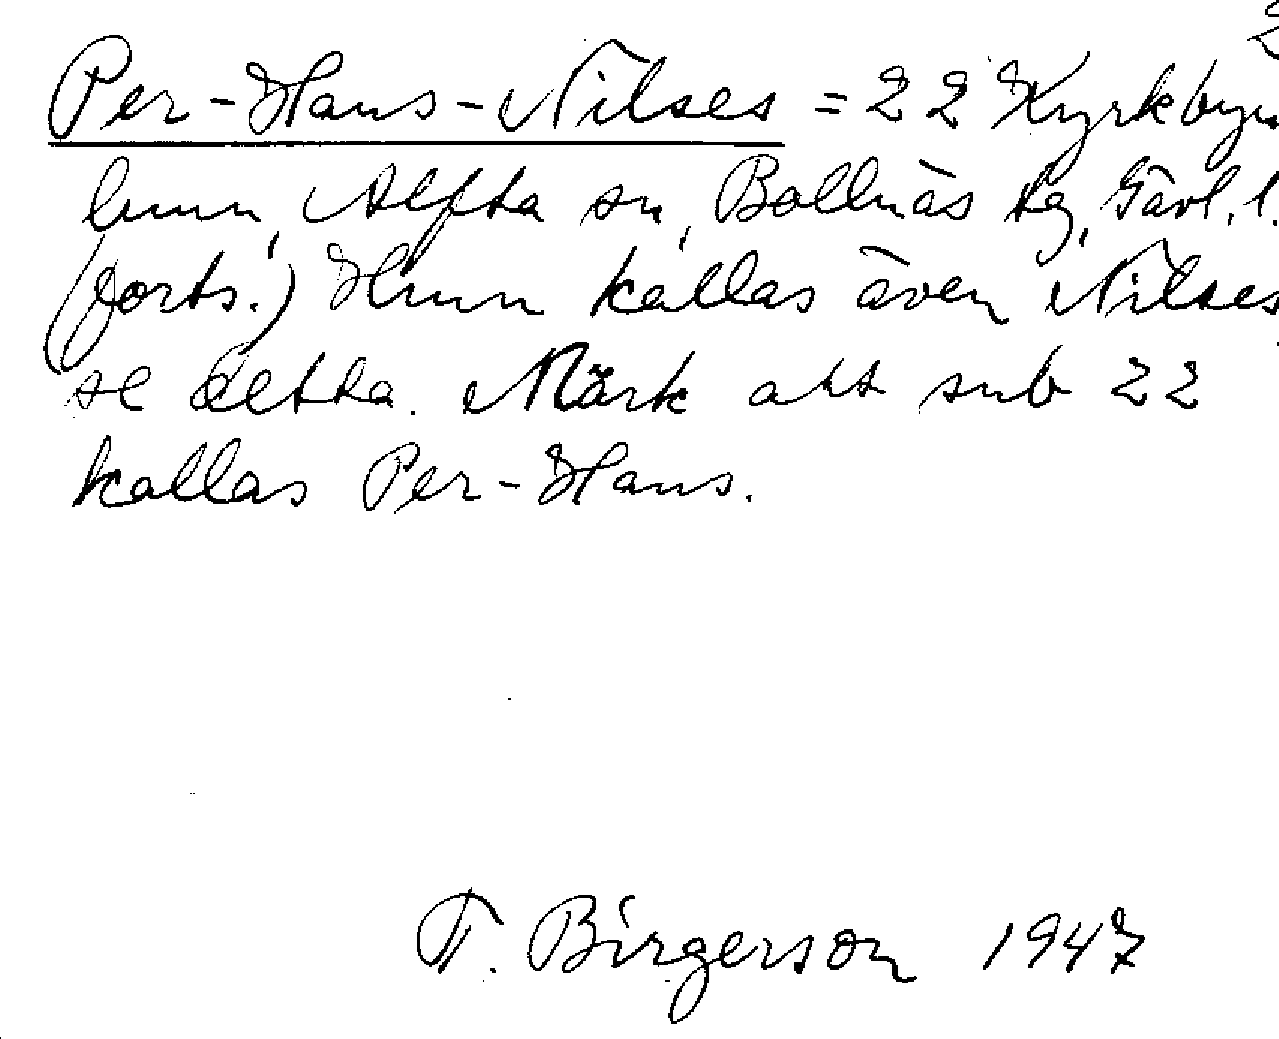 2
Per-Hans-Nilses = 22 Kyrkbyn
hmn, Alfta sn, Bollnäs tg, Gävl. l.
(forts.) Hmn kallas även Nilses
se detta. Märk att sub 22
kallas Per-Hans.
F. Birgerson 1947